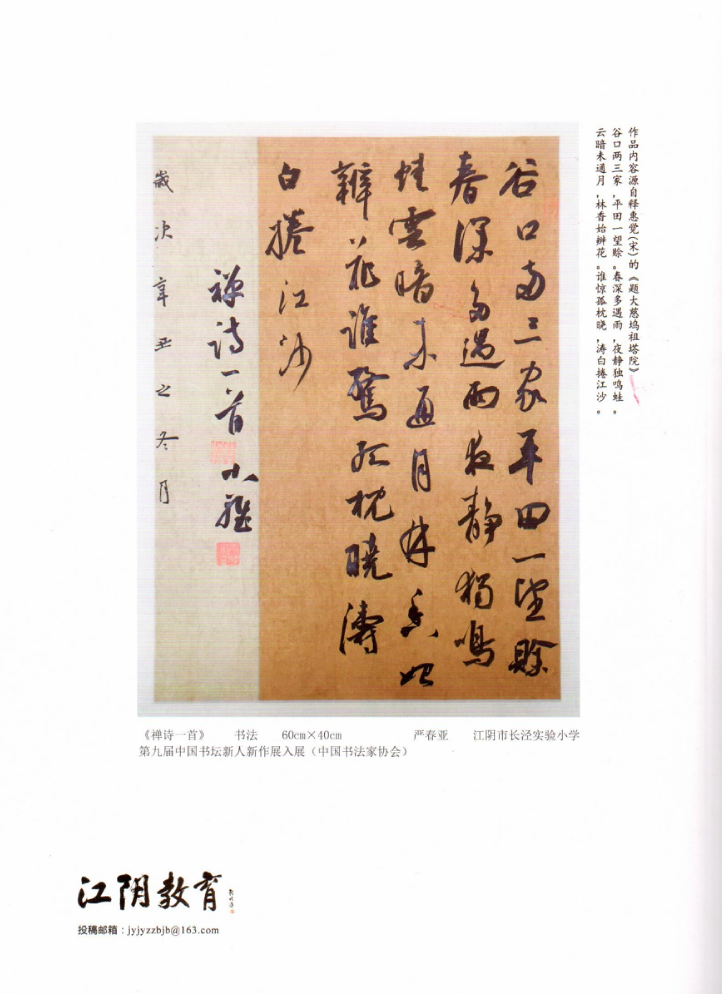 作品内容源自释惠觉(宋)的《题大慈坞祖塔院》
谷口两三家,平田一望赊。春深多遇雨,夜静独鸣蛙。
云暗未通月,林香始辨花。谁惊孤枕晓,涛白捲江沙。
谷口両三家平田一望賖
春深多遇雨夜静獨鳴
蛙雲暗未通月林香始
辨花誰驚孤枕曉濤
白捲江沙
禅诗一首 小雅
歲次辛丑之冬月
《禅诗一首》 书法 60cm×40cm 严春亚 江阴市长泾实验小学
第九届中国书坛新人新作展入展(中国书法家协会)
江阴教育
投稿邮箱:jyjyzzbjb@163.com